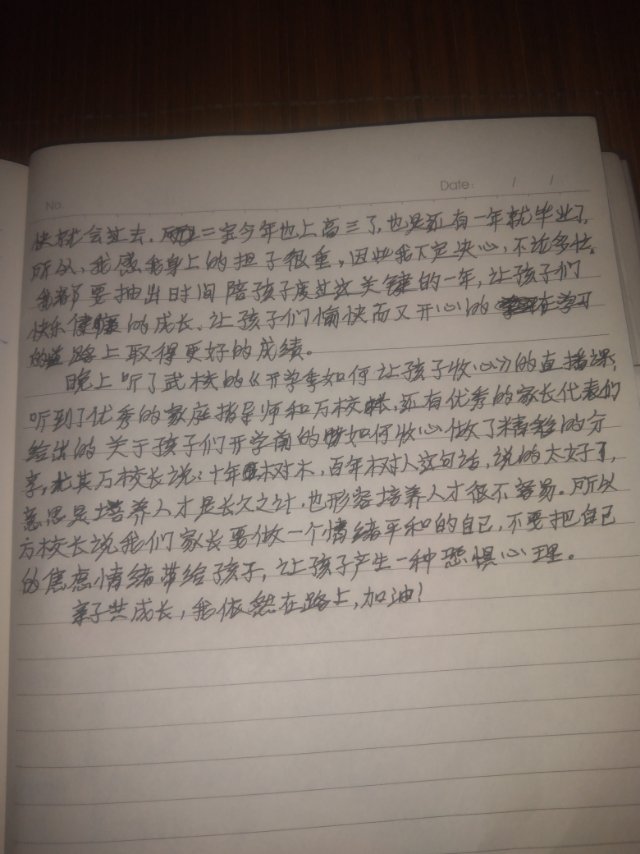 No.
Date: / /
快就会过去。而二宝今年也上高三了,也是还有一年就毕业了,
所以,我感我身上的担子很重,因此我下定决心,不论多忙,
我都要抽出时间陪孩子度过这关键的一年,让孩子们
快乐健康的成长、让孩子们愉快而又开心的在学习
的道路上取得更好的成绩。
晚上听了武校的《开学季如何让孩子收心》的直播课,
听到了优秀的家庭指导师和万校长,还有优秀的家长代表们
给出的关于孩子们开学前的如何收心做了精彩的分
享,尤其万校长说:十年树木,百年树人这句话,说的太好了,
意思是培养人才是长久之计,也形容培养人才很不容易。所以
万校长说我们家长要做一个情绪平和的自己,不要把自己
的焦虑情绪带给孩子,让孩子产生一种恐惧心理。
亲子共成长,我依然在路上,加油!